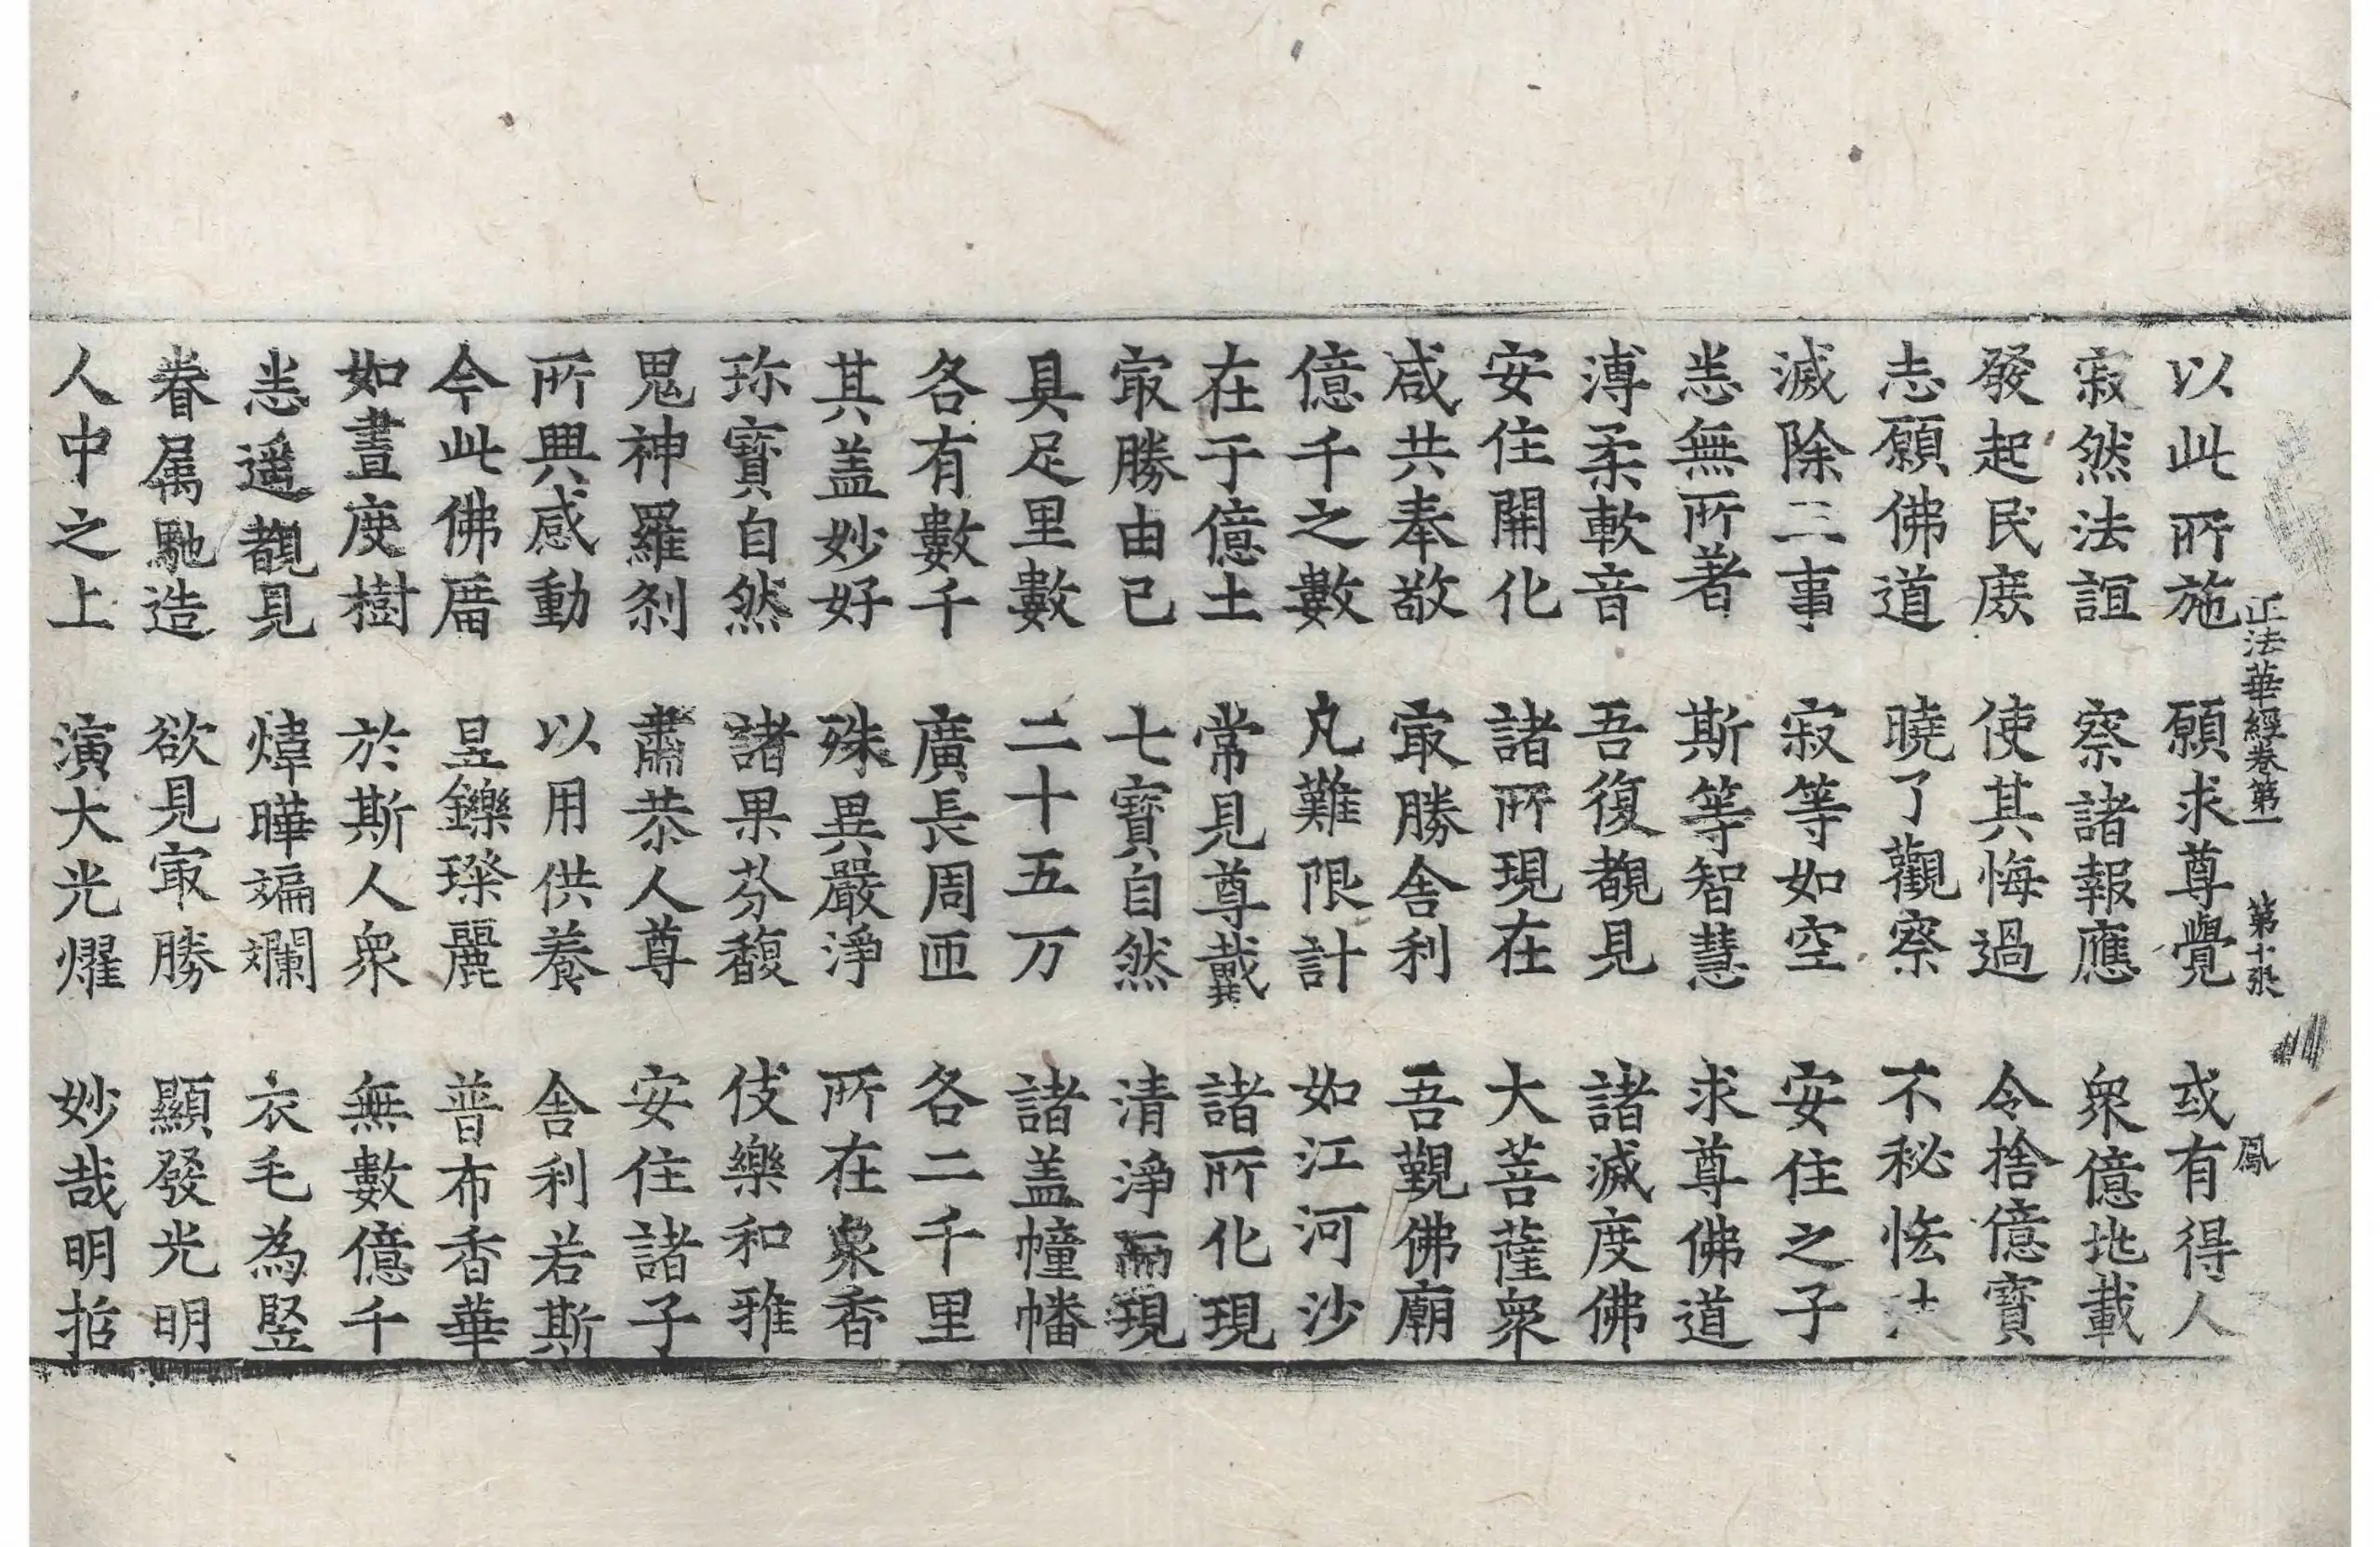 正法華經卷第一 第十張 鳳
以此所施 願求尊覺 或有得人
寂然法誼 察諸報應 衆億地載
發起民庶 使其悔過 令捨億寶
志願佛道 曉了觀察 不秘恡法
滅除三事 寂等如空 安住之子
悉無所著 斯等智慧 求尊佛道
溥柔軟音 吾復覩見 諸滅度佛
安住開化 諸所現在 大菩薩衆
咸共奉敬 㝡勝舍利 吾觀佛廟
億千之數 凡難限計 如江河沙
在于億土 常見尊戴 諸所化現
㝡勝由已 七寶自然 清淨而現
具足里數 二十五万 諸盖幢幡
各有數千 廣長周匝 各二千里
其盖妙好 殊異嚴淨 所在衆香
珎寶自然 諸果芬馥 伎樂和雅
鬼神羅剎 肅恭人尊 安住諸子
所興感動 以用供養 舍利若斯
今此佛𢉖 昱鑠璨麗 普布香華
如晝度樹 於斯人衆 無數億千
悉遥覩見 煒曄斒斕 衣毛為竪
眷属馳造 欲見㝡勝 顯發光明
人中之上 演大光燿 妙哉明哲